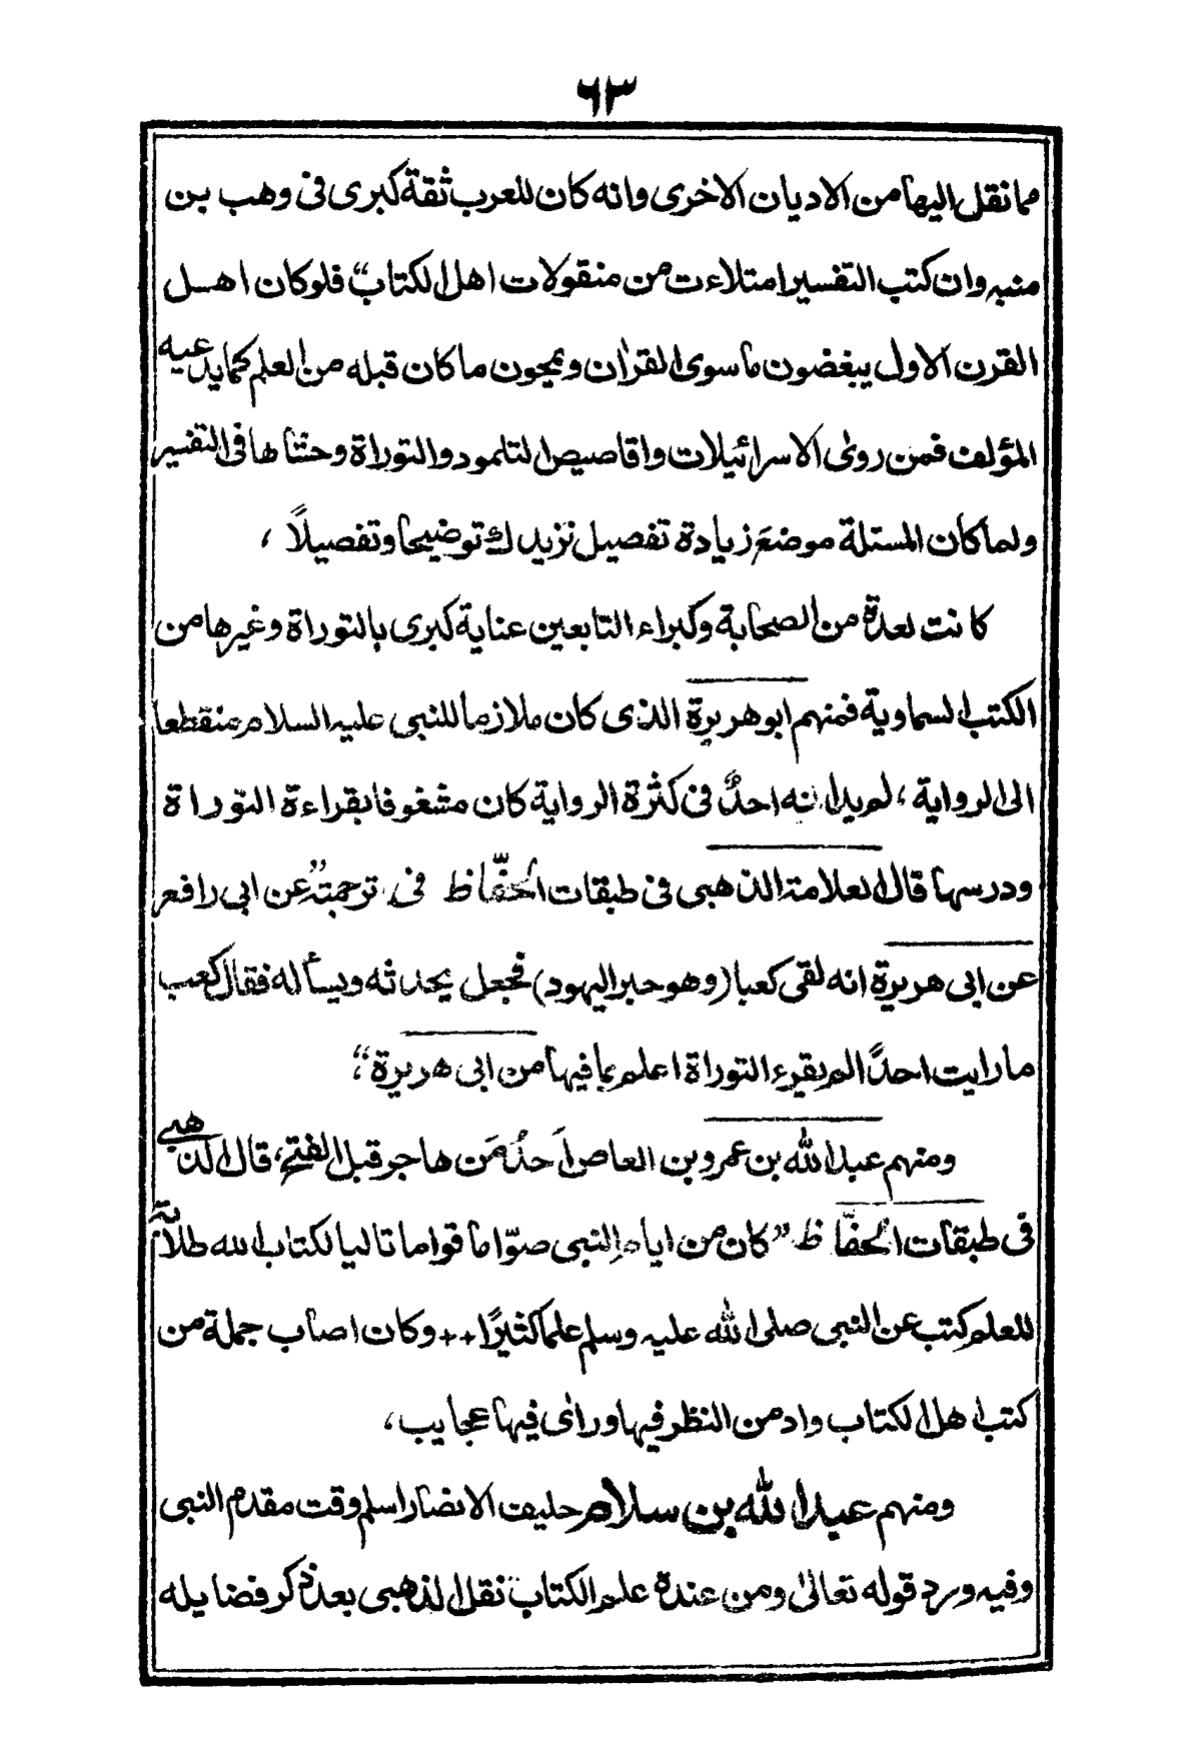 ٦٣
مما نقل اليها من الاديان الاخرى وانه كان للعرب ثقة كبرى فى وهب بن
منبه وان كتب التفسير امتلاءت من منقولات اهل الكتاب“ فلو كان اهل
القرن الاول يبغضون ما سوى القراٰن ويمجون ما كان قبله من العلم كما يدعيه
المؤلف فمن روىٰ الاسرائيلات واقاصيص التلمود والتوراة وحشاها فى التفسير
ولما كان المسئلة موضع زيادة تفصيل نزيدك توضيحا وتفصيلاً ،
كانت لعدة من الصحابة وكبراء التابعين عناية كبرى بالتوراة وغيرها من
الكتب السماوية فمنهم ابو هريرة الذى كان ملازما للنبى عليه السلام منقطعا
الى الرواية ، لم يدانه احدٌ فى كثرة الرواية كان مشغوفا بقراءة التوراة
ودرسها قال العلامة الذهبى فى طبقات الحفّاظ فى ترجمته ”عن ابى رافع
عن ابى هريرة انه لقى كعبا (وهو حبر اليهود) فجعل يحدثه ويسأله فقال كعب
ما رايت احدًا لم يقرء التوراة اعلم بما فيها من ابى هريرة“؛
ومنهم عبد الله بن عمرو بن العاص اَحدُ مَن هاجر قبل الفتح ، قال الذهبى
فى طبقات الحفّاظ ”كان من ايام النبى صوّاما قواما تاليا لكتاب الله طلاّبة
للعلم كتب عن النبى صلى الله عليه وسلم علما كثيرًا ++ وكان اصاب جملة من
كتب اهل الكتاب وادمن النظر فيها وراٰى فيها عجايب ،
ومنهم عبد الله بن سلام حليف الانصار اسلم وقت مقدم النبى
وفيه ورد قوله تعالىٰ ومن عنده علم الكتاب“ نقل الذهبى بعد ذكر فضايله